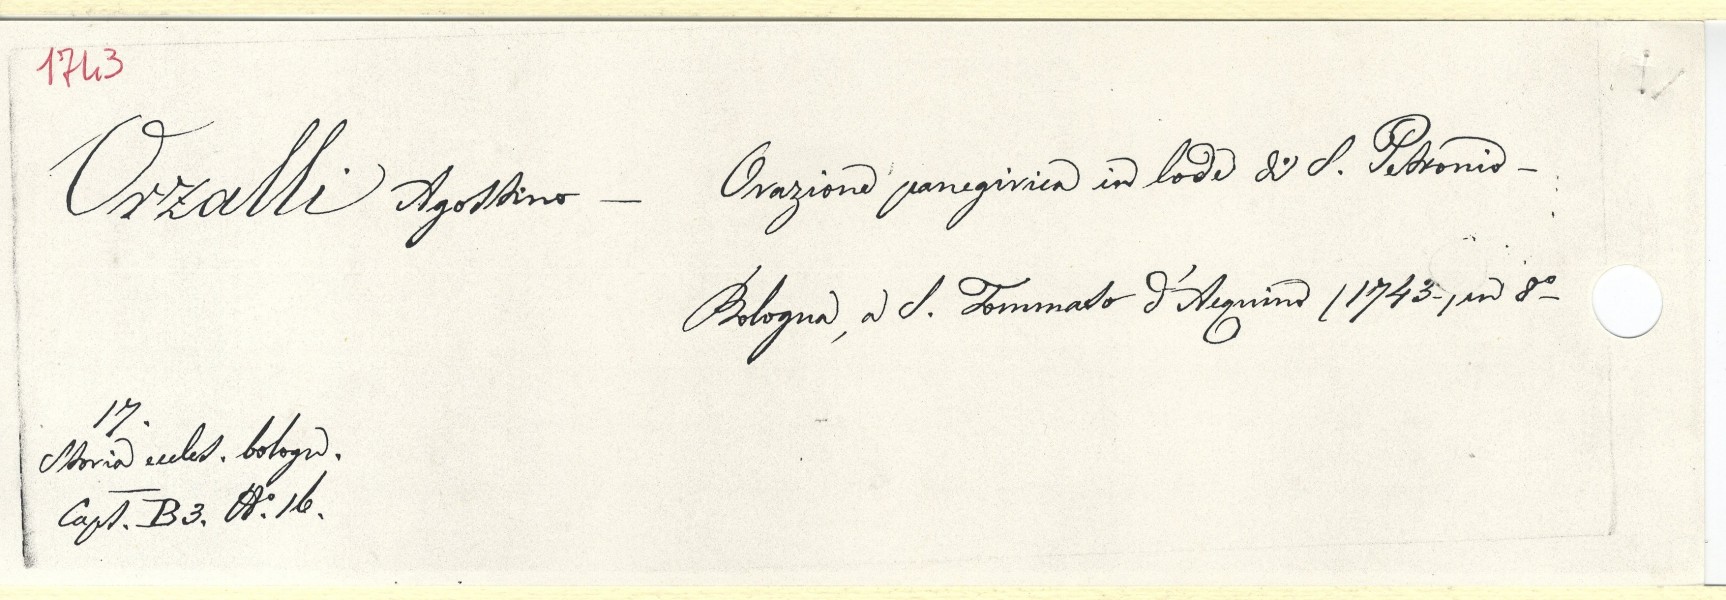 1743
Orzalli Agostino — Orazione panegirica in lode di S. Petronio —
Bologna, a S. Tommaso d'Aquino, 1743, in 8°
17.
Storia eccles. bologn.
Capt. B3. N° 16.